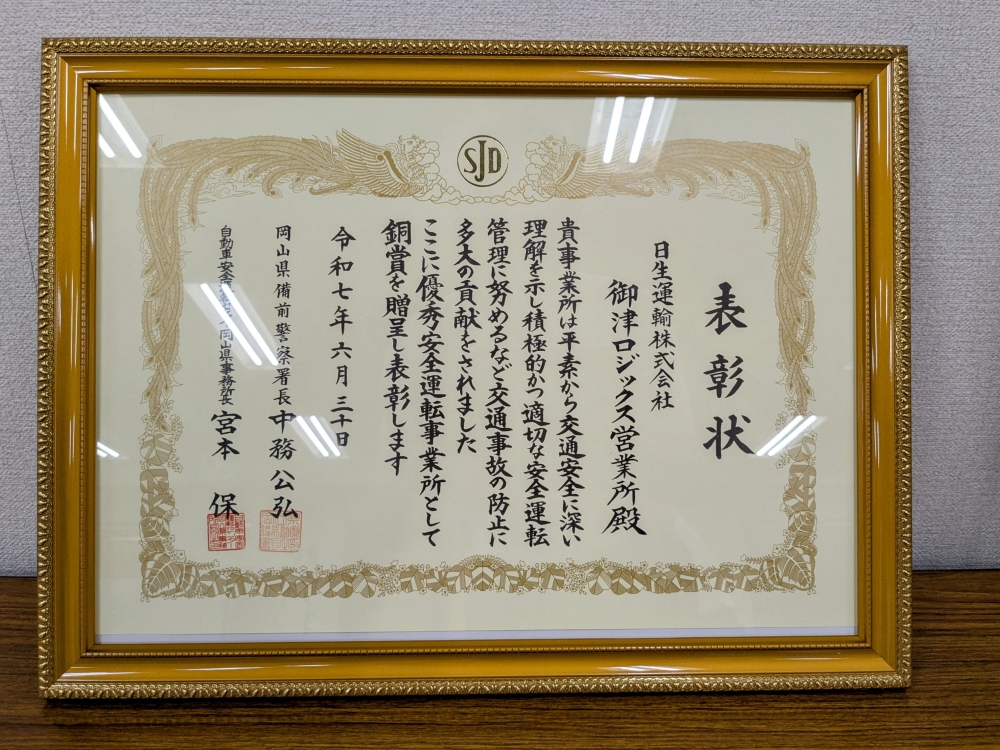 SJD
表彰状
日生運輸株式会社
御津ロジックス営業所殿
貴事業所は平素から交通安全に深い
理解を示し積極的かつ適切な安全運転
管理に努めるなど交通事故の防止に
多大の貢献をされました
ここに優秀安全運転事業所として
銅賞を贈呈し表彰します
令和七年六月三十日
岡山県備前警察署長 中務公弘
自動車安全 岡山県事務所長 宮本 保